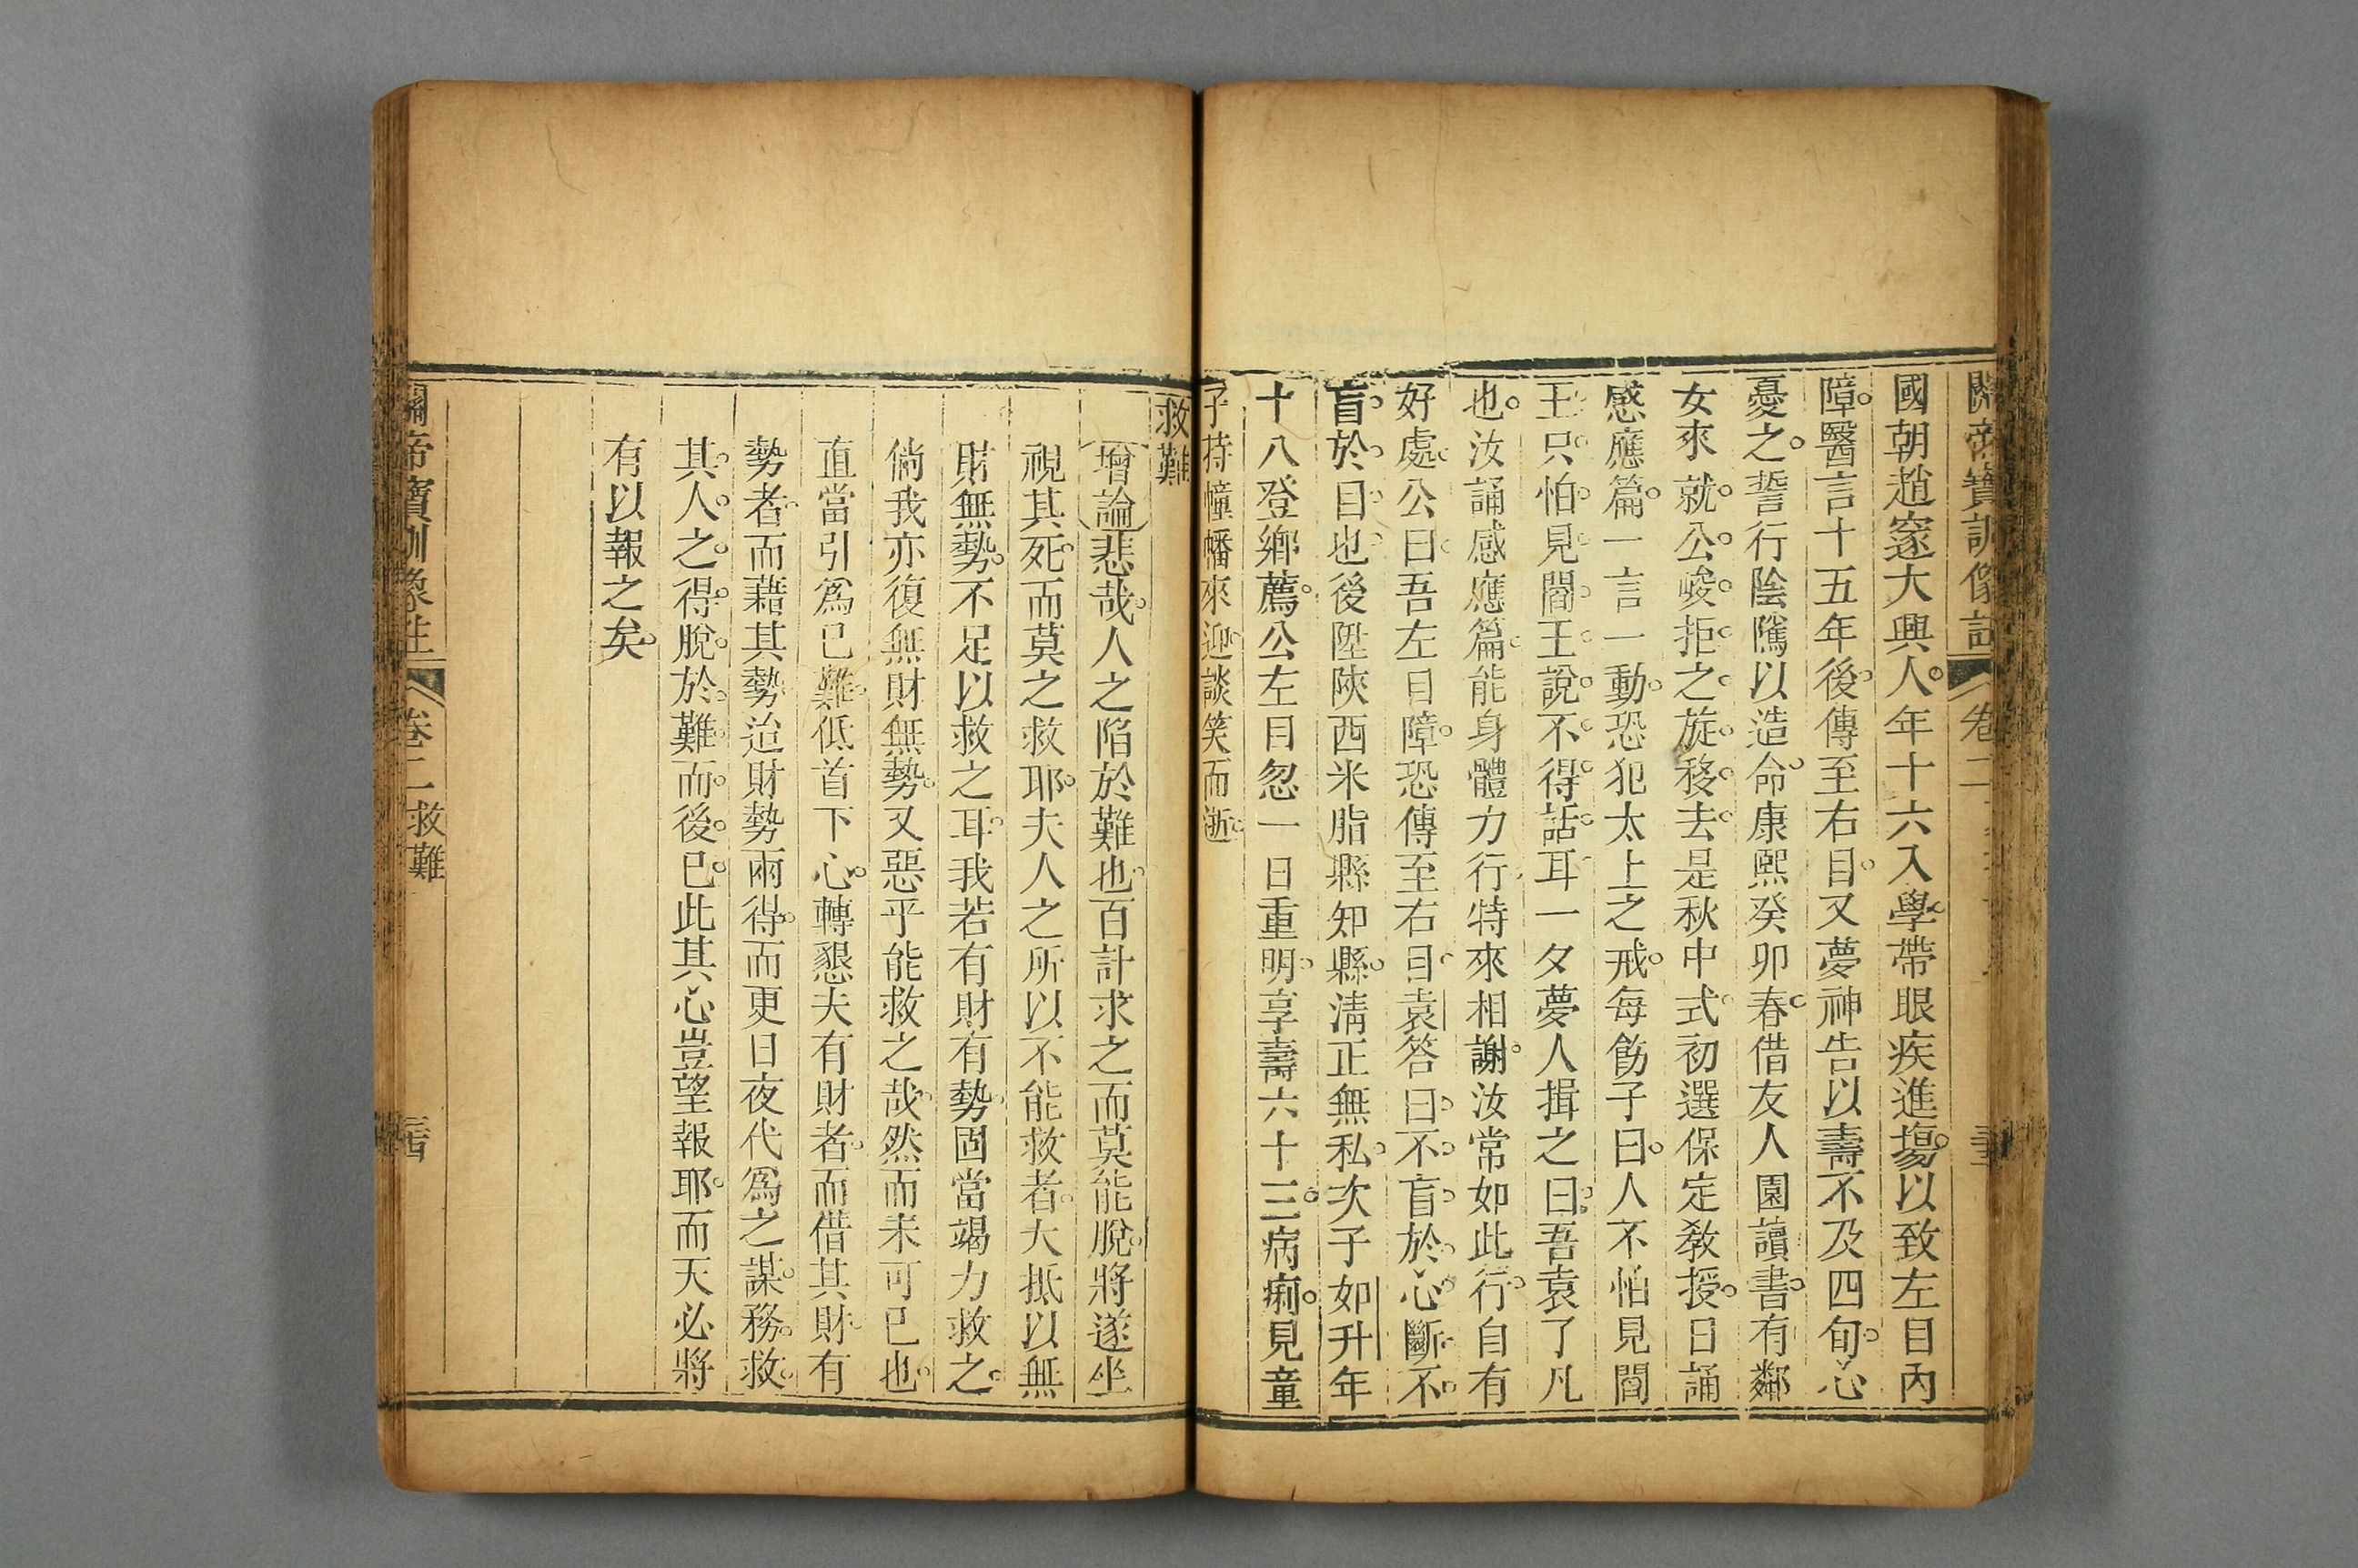 關帝寶訓像註 卷二
國朝趙窾大興人年十六入學帶眼疾進塲以致左目內
障醫言十五年後傳至右目又夢神告以壽不及四旬心
憂之誓行陰隲以造命康熙癸卯春借友人園讀書有鄰
女來就公峻拒之旋移去是秋中式初選保定敎授日誦
感應篇一言一動恐犯太上之戒每飭子曰人不怕見閻
王只怕見閻王說不得話耳一夕夢人揖之曰吾袁了凡
也汝誦感應篇能身體力行特來相謝汝常如此行自有
好處公曰吾左目障恐傳至右目袁答曰不盲於心斷不
盲於目也後陞陝西米脂縣知縣淸正無私次子如升年
十八登鄉薦公左目忽一日重明享壽六十三病痢見童
子持幢幡來迎談笑而逝
救難
增論悲哉人之陷於難也百計求之而莫能脫將遂坐
視其死而莫之救耶夫人之所以不能救者大抵以無
財無勢不足以救之耳我若有財有勢固當竭力救之
倘我亦復無財無勢又惡乎能救之哉然而未可已也
直當引爲已難低首下心轉懇夫有財者而借其財有
勢者而藉其勢迨財勢兩得而更日夜代爲之謀務救
其人之得脫於難而後已此其心豈望報耶而天必將
有以報之矣
關帝寶訓像註 卷二 救難